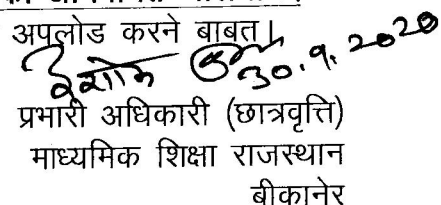 अपलोड करने बाबत।
30.9.2020
प्रभारी अधिकारी (छात्रवृत्ति)
माध्यमिक शिक्षा राजस्थान
बीकानेर